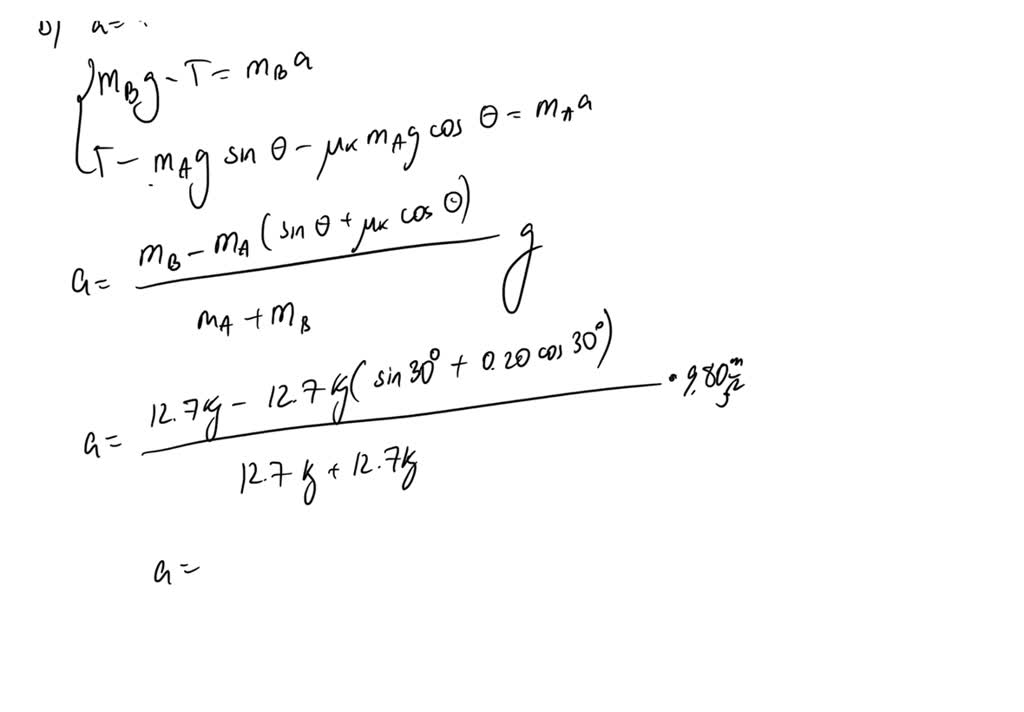 b) a= :
m_B g - T = m_B a
T - m_A g sin θ - μ_K m_A g cos θ = m_A a
a = (m_B - m_A (sin θ + μ_K cos θ)) / (m_A + m_B) g
a = (12.7 kg - 12.7 kg (sin 30° + 0.20 cos 30°)) / (12.7 kg + 12.7 kg) • 9.80 m/s²
a =